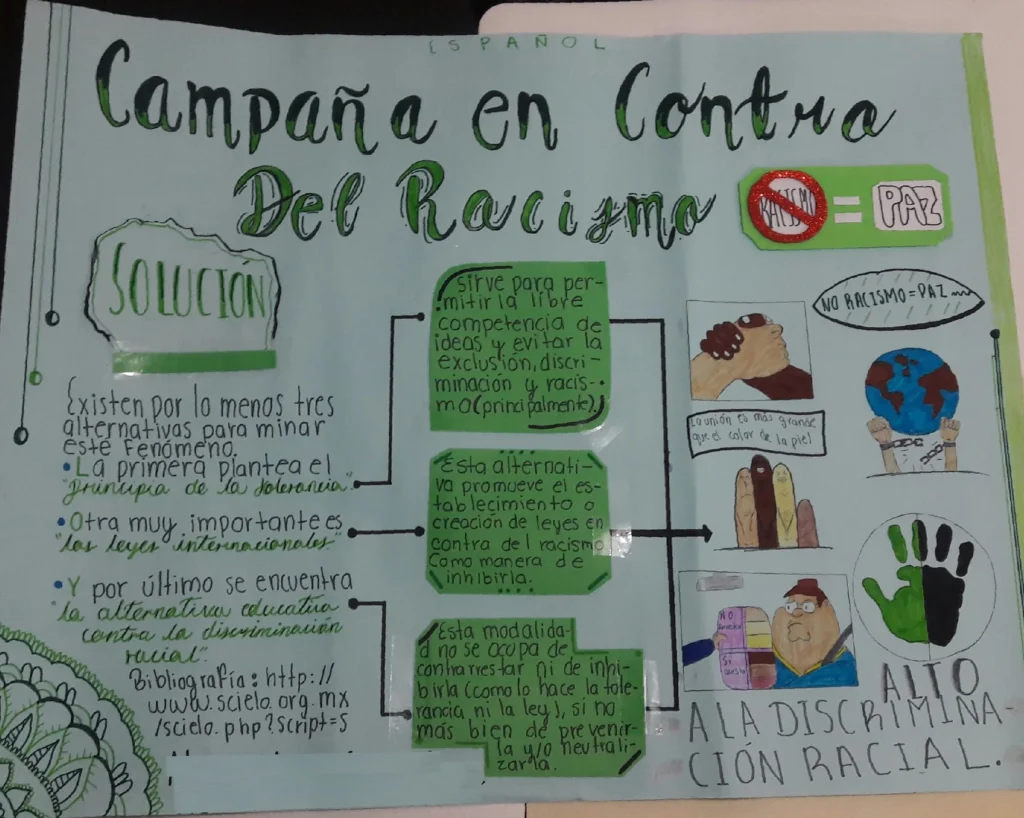 ESPAÑOL
Campaña en Contra
Del Racismo
RACISMO = PAZ
SOLUCIÓN
Existen por lo menos tres
alternativas para minar
este Fenómeno.
• La primera plantea el
"principia de la tolerancia."
• Otra muy importante es
"las leyes internacionales."
• Y por último se encuentra
"la alternativa educativa
contra la discriminación
racial".
Bibliografía: http://
www.scielo.org.mx
/scielo.php?script=S
sirve para per-
mitir la libre
competencia de
ideas y evitar la
exclusión, discri-
minación y racis-
mo (principalmente)
Esta alternati-
va promueve el es-
tablecimiento o
creación de leyes en
contra del racismo
como manera de
inhibirla.
Esta modalida-
d no se ocupa de
contrarrestar ni de inhi-
birla (como lo hace la tole-
rancia, ni la ley), si no
más bien de prevenir-
la y/o neutrali-
zarla.
NO RACISMO = PAZ
La unión es más grande
que el color de la piel
NO
SI
ALTO
A LA DISCRIMINA-
CIÓN RACIAL.